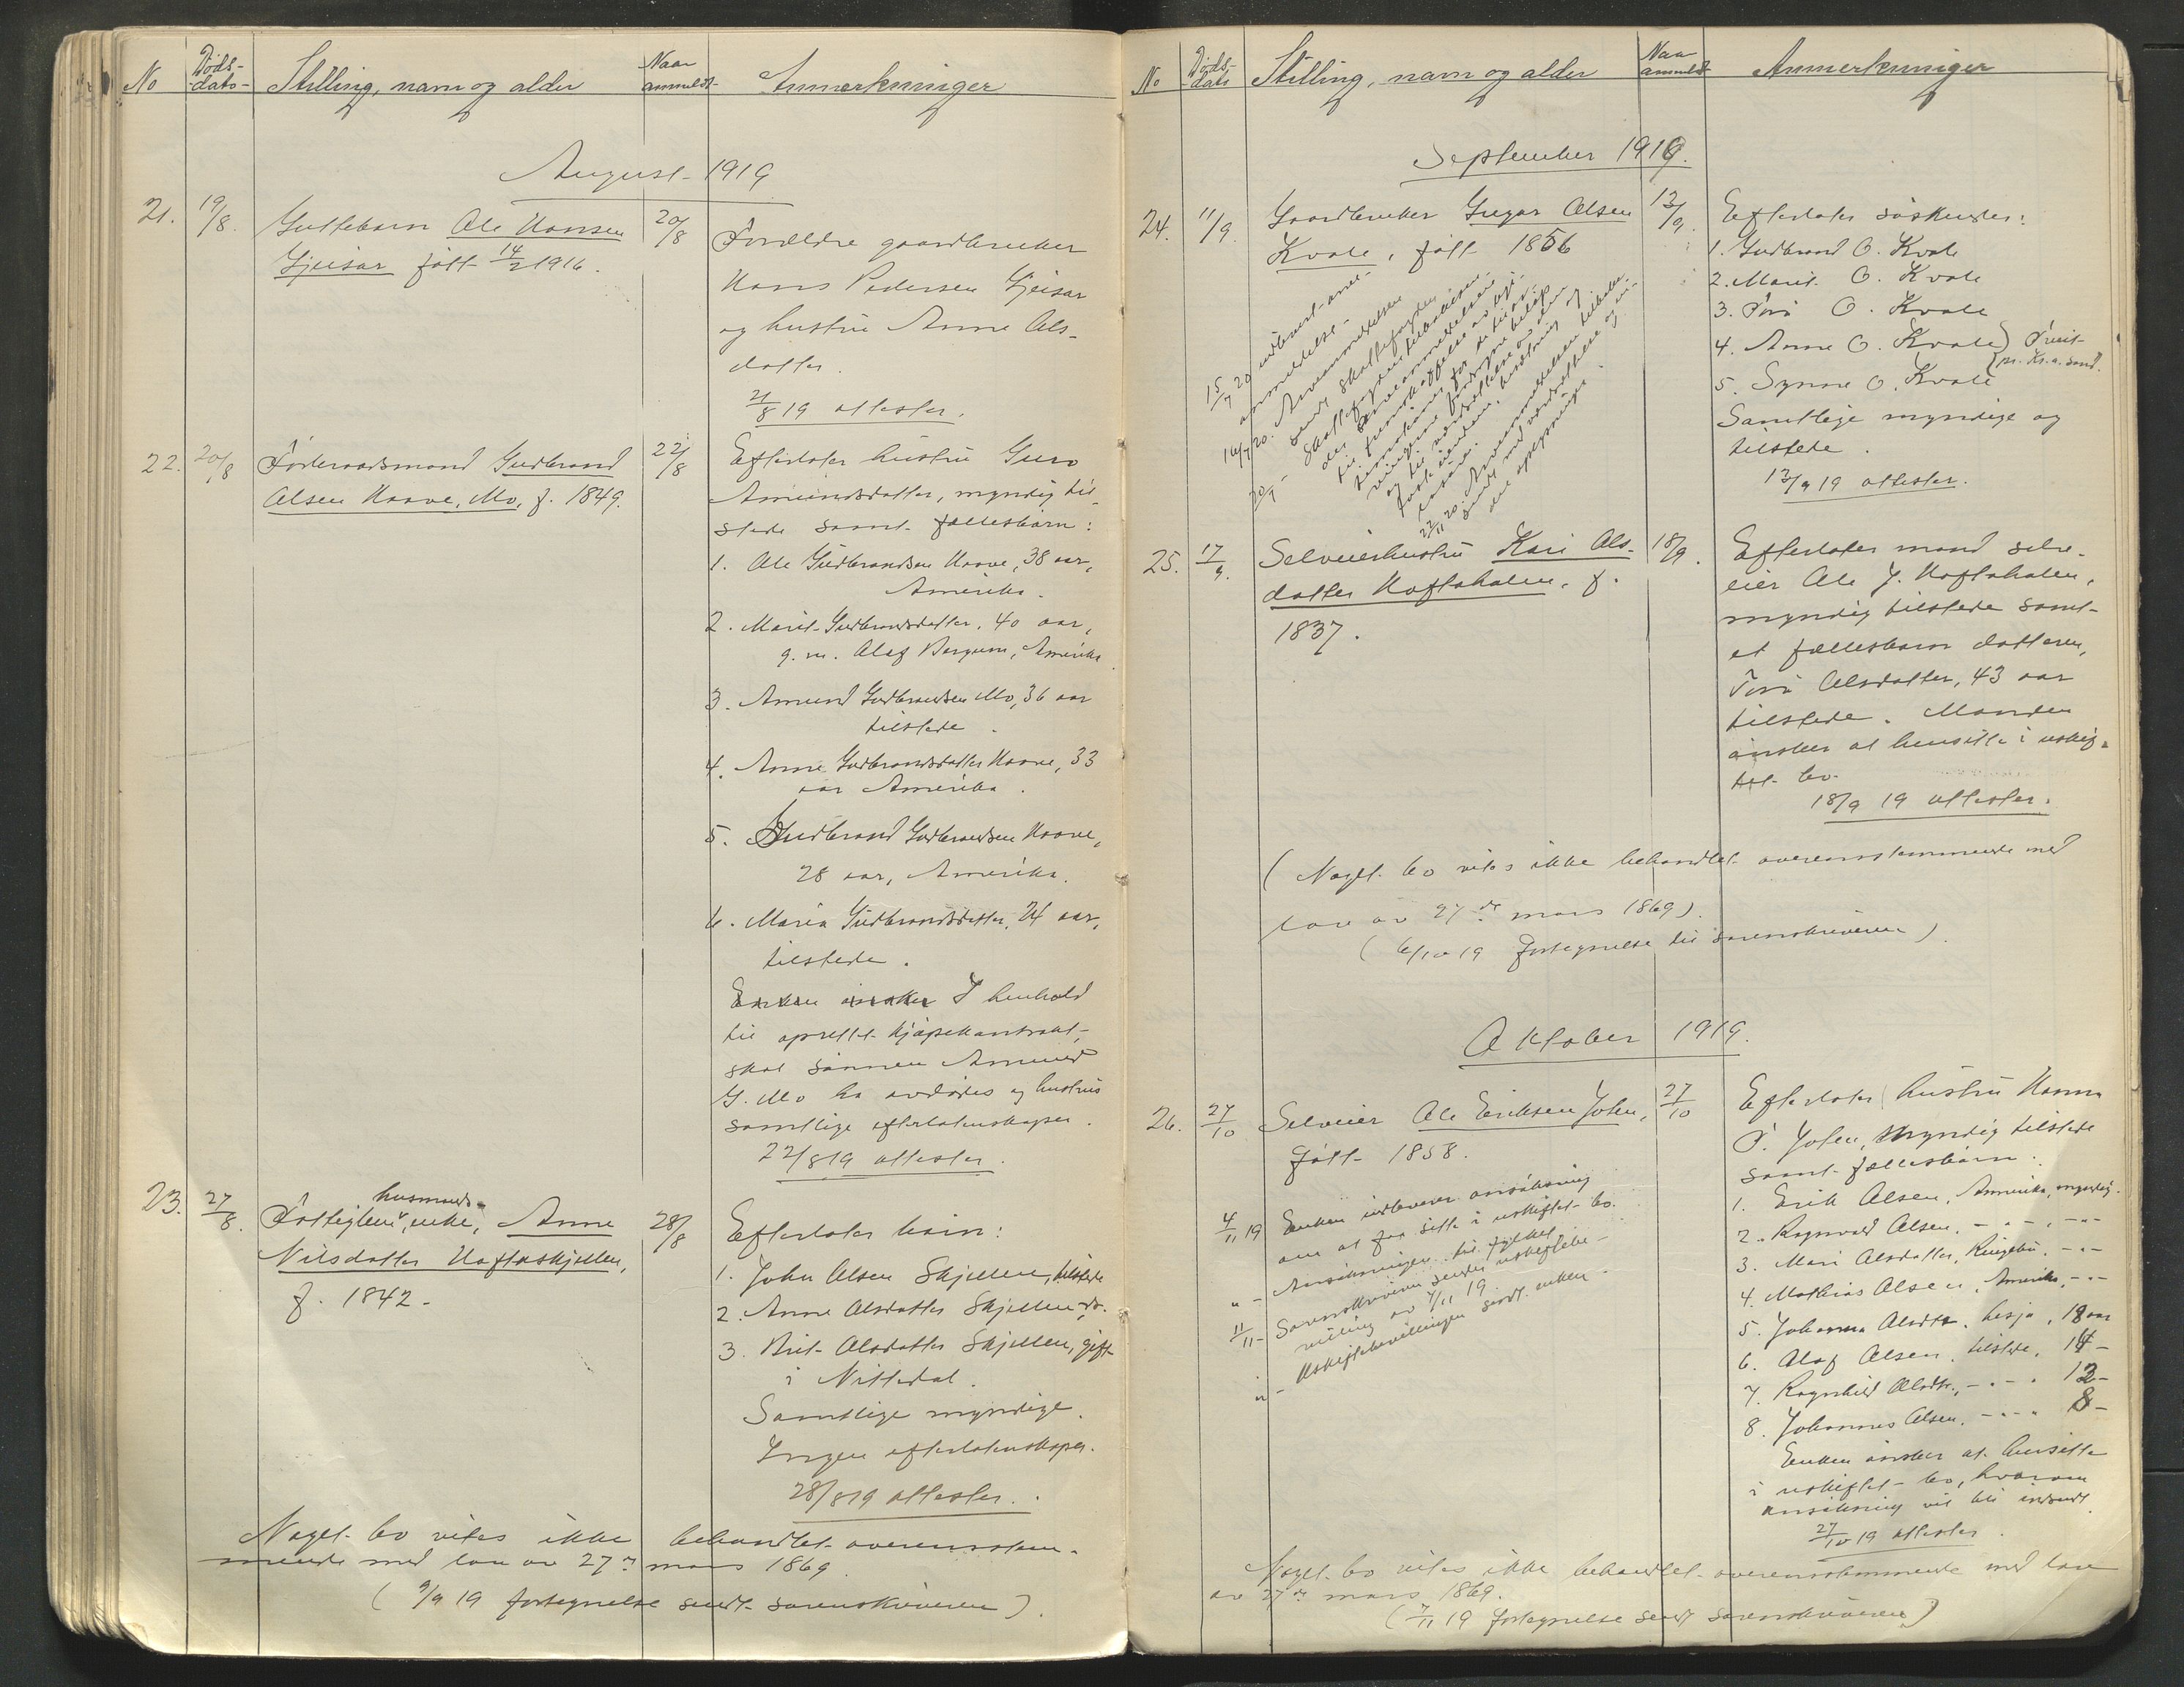 No
Døds-
dato-
Stilling, navn og alder
Naar
anmeldt-
Anmerkninger
August 1919
21.
19/8.
Guttebarn Ole Hansen
Gjeisar født 14/2 1916.
20/8
Forældre gaardbruker
Hans Pedersen Gjeisar
og hustru Anne Ols-
datter.
21/8 19 attester.
22.
20/8
Føderaadsmand Gudbrand
Olsen Haave, Mo, f. 1849.
22/8
Efterlater hustru Guro
Amundsdatter, myndig til-
stede samt fællesbarn:
1. Ole Gudbrandsen Haave, 38 aar,
Amerika.
2. Marit Gudbrandsdatter, 40 aar,
g. m. Olaf Bergum, Amerika
3. Amund Gudbrandsen Mo, 36 aar
tilstede.
4. Anne Gudbrandsdatter Haave, 33
aar Amerika.
5. Gudbrand Gudbrandsen Haave,
28 aar, Amerika.
6. Maria Gudbrandsdatter, 24 aar,
tilstede.
Enken ønsker I henhold
til oprettet kjøpekontrakt
skal sønnen Amund
G. Mo ha avdødes og hustrus
samtlige efterlatenskaper.
22/8 19 attester.
23.
27/8.
husmands-
Fattiglem, enke, Anne
Nilsdatter Haftaskjellen,
f. 1842.
28/8
Efterlater barn:
1. John Olsen Skjellen, tilstede
2. Anne Olsdatter Skjellen do.
3. Brit Olsdatter Skjellen, gift
i Nittedal.
Samtlige myndige.
Ingen efterlatenskaper.
28/8 19 attester.
Noget bo vites ikke behandlet overensstem-
mende med lov av 27de mars 1869
(9/9 19 fortegnelse sendt sorenskriveren).
No
Døds-
dato
Stilling, navn og alder
Naar
anmeldt
Anmerkninger
September 1919.
24.
11/9.
Gaardbruker Gregar Olsen
Kvale, født 1856
13/9.
Efterlater søskender:
1. Gudbrand O. Kvale
2. Marit O. Kvale
3. Tora O. Kvale
4. Anne O. Kvale
5. Synne O. Kvale
Samtlige myndige og
tilstede.
13/9 19 attester.
15/7 20 indkrævet arve-
anmeldelse.
16/7 20. Arveanmeldelsen
sendt skattefogden
25.
17/9.
Selveierhustru Kari Ols-
datter Haftahalen, f.
1837.
18/9.
Efterlater mand selv-
eier Ole J. Haftahalen,
myndig tilstede samt
et fællesbarn datteren,
Tora Olsdatter, 43 aar
tilstede. Manden
ønsker at hensitte i uskif-
tet bo.
18/9 19 attester.
(Noget bo vites ikke behandlet overensstemmende med
lov av 27de mars 1869).
(6/10 19 fortegnelse til sorenskriveren).
Oktober 1919.
26.
27/10
Selveier Ole Eriksen Jølen,
født 1858.
27/10
Efterlater hustru Hanna
P. Jølen, myndig tilstede
samt fællesbarn:
1. Erik Olsen, Amerika, myndig.
2. Ragnvald Olsen, - " - , - " -
3. Mari Olsdatter, Ringebu, - " -
4. Mathias Olsen, Amerika, - " -
5. Johanna Olsdtr. 18 aar
6. Olaf Olsen, tilstede, 14 -
7. Ragnhild Olsdtr., - " - , 12 -
8. Johannes Olsen, - " - , 8 -
Enken ønsker at hensitte
i uskiftet bo, hvorom
ansøkning vil bli indsendt
27/10 19 attester.
4/11 19 Enken indleverer ansøkning
om at faa sitte i uskiftet bo.
" - Ansøkningen til fylket
11/11 - Sorenskriveren sender uskiftebe-
villing av 7/11 19.
" - Uskiftebevillingen sendt enken.
Noget bo vites ikke behandlet overensstemmende med lov
av 27de mars 1869.
(7/11 19 fortegnelse sendt sorenskriveren)